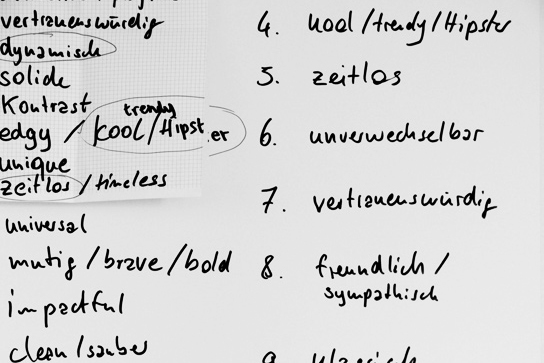 vertrauenswürdig
dynamisch
solide
Kontrast
trendy
edgy / kool/Hipster
unique
zeitlos / timeless
universal
mutig / brave / bold
impactful
clean / sauber
4. kool / trendy / Hipster
5. zeitlos
6. unverwechselbar
7. vertrauenswürdig
8. freundlich /
sympathisch